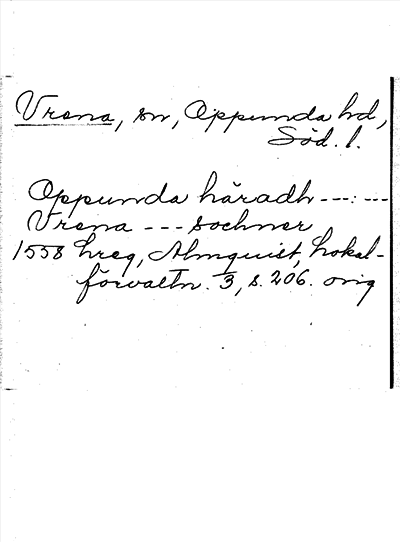 Vrena, sn, Oppunda hd,
Söd. l.
Oppunda häradh ---:---
Vrena --- sochner
1558 hreg, Almquist, Lokal-
förvaltn. 3, s. 206. orig